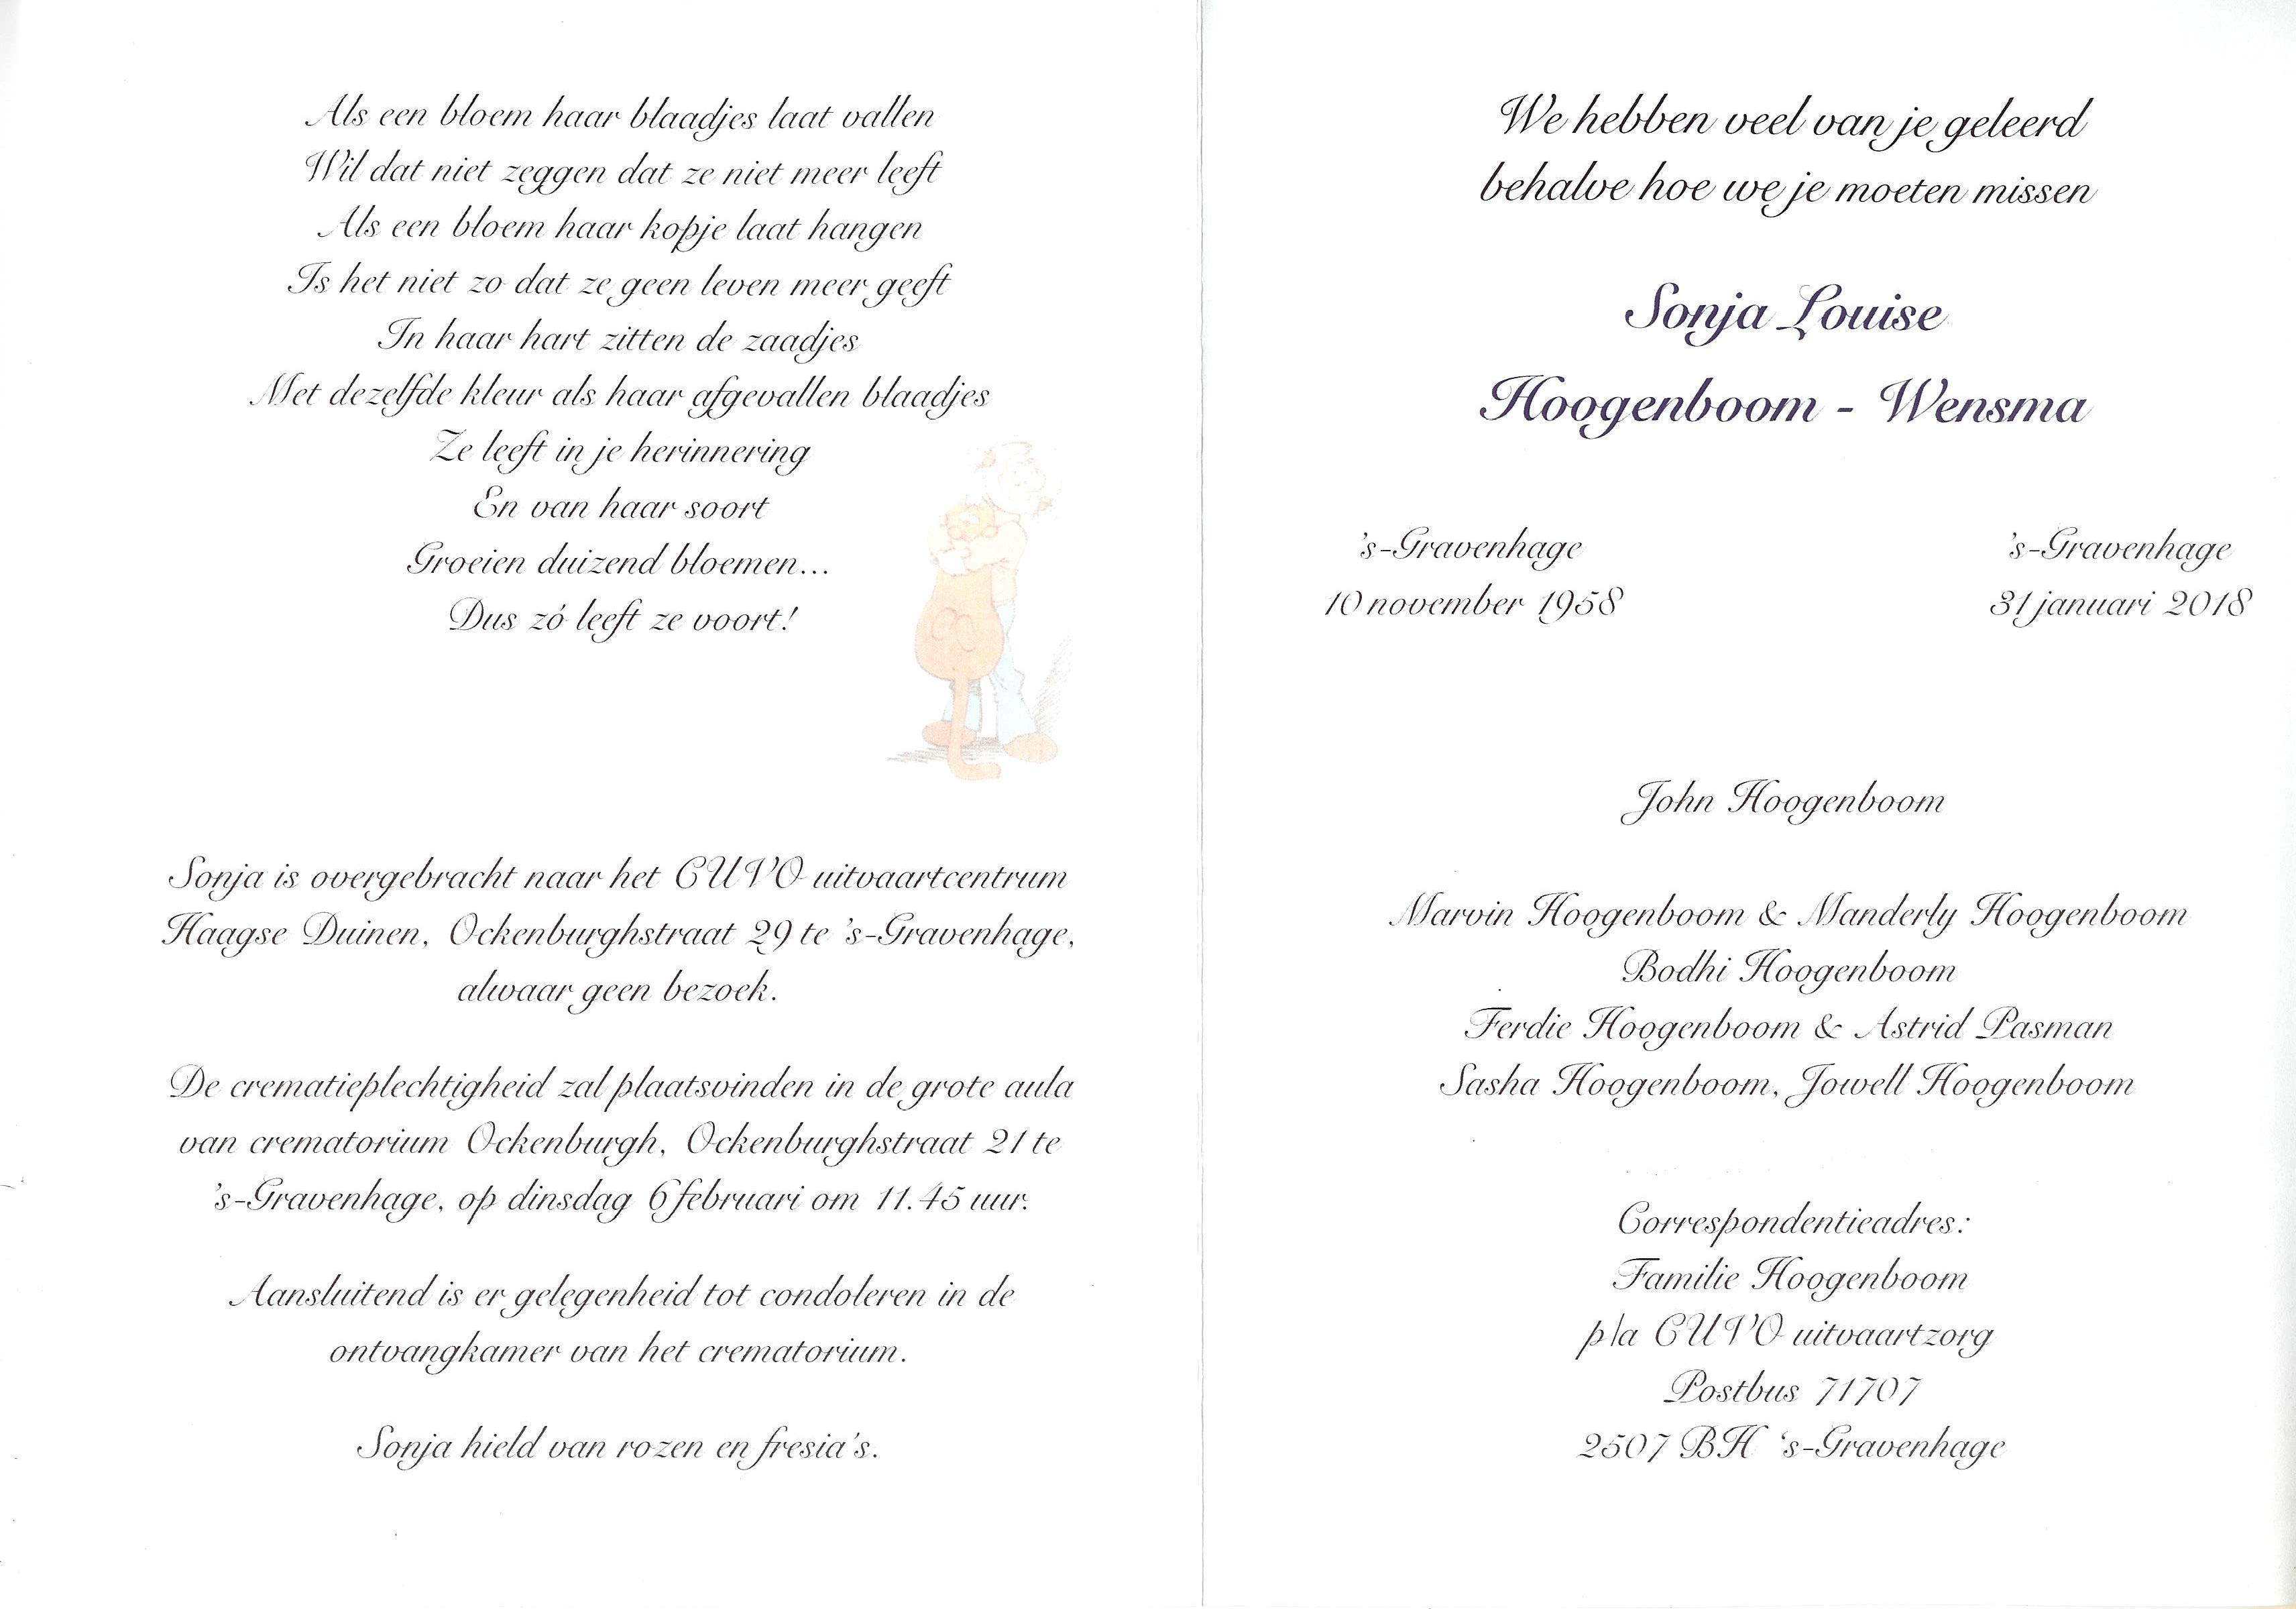 Als een bloem haar blaadjes laat vallen
Wil dat niet zeggen dat ze niet meer leeft
Als een bloem haar kopje laat hangen
Is het niet zo dat ze geen leven meer geeft
In haar hart zitten de zaadjes
Met dezelfde kleur als haar afgevallen blaadjes
Ze leeft in je herinnering
En van haar soort
Groeien duizend bloemen...
Dus zó leeft ze voort!
Sonja is overgebracht naar het CUVO uitvaartcentrum
Haagse Duinen, Ockenburghstraat 29 te 's-Gravenhage,
alwaar geen bezoek.
De crematieplechtigheid zal plaatsvinden in de grote aula
van crematorium Ockenburgh, Ockenburghstraat 21 te
's-Gravenhage, op dinsdag 6 februari om 11.45 uur.
Aansluitend is er gelegenheid tot condoleren in de
ontvangkamer van het crematorium.
Sonja hield van rozen en fresia's.
We hebben veel van je geleerd
behalve hoe we je moeten missen
Sonja Louise
Hoogenboom - Wensma
's-Gravenhage 's-Gravenhage
10 november 1958 31 januari 2018
John Hoogenboom
Marvin Hoogenboom & Manderly Hoogenboom
Bodhi Hoogenboom
Ferdie Hoogenboom & Astrid Pasman
Sasha Hoogenboom, Jowell Hoogenboom
Correspondentieadres:
Familie Hoogenboom
p/a CUVO uitvaartzorg
Postbus 71707
2507 BH 's-Gravenhage